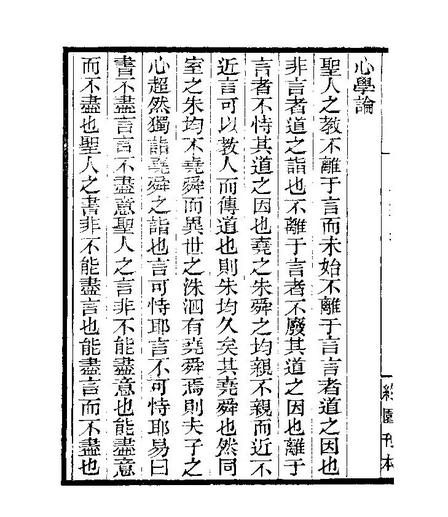 心學論
聖人之教不離于言而未始不離于言言者道之因也
非言者道之詣也不離于言者不廢其道之因也離于
言者不恃其道之因也堯之朱舜之均親不親而近不
近言可以教人而傳道也則朱均久矣其堯舜也然同
室之朱均不堯舜而異世之洙泗有堯舜焉則夫子之
心超然獨詣堯舜之詣也言可恃耶言不可恃耶易曰
書不盡言言不盡意聖人之言非不能盡意也能盡意
而不盡也聖人之書非不能盡言也能盡言而不盡也
刊本